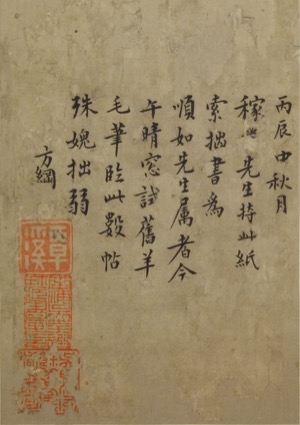 丙辰中秋月
稼先生持此紙
索拙書為
順如先生属者今
午晴窓試舊羊
毛筆臨此數帖
殊媿拙弱
方綱